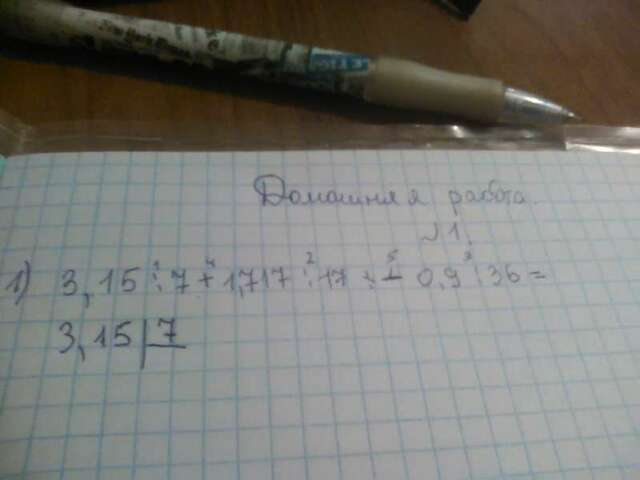 Домашняя работа.
№1.
1) 3,15 : 7 + 1,717 : 17 + 0,9 : 36 =
3,15 | 7